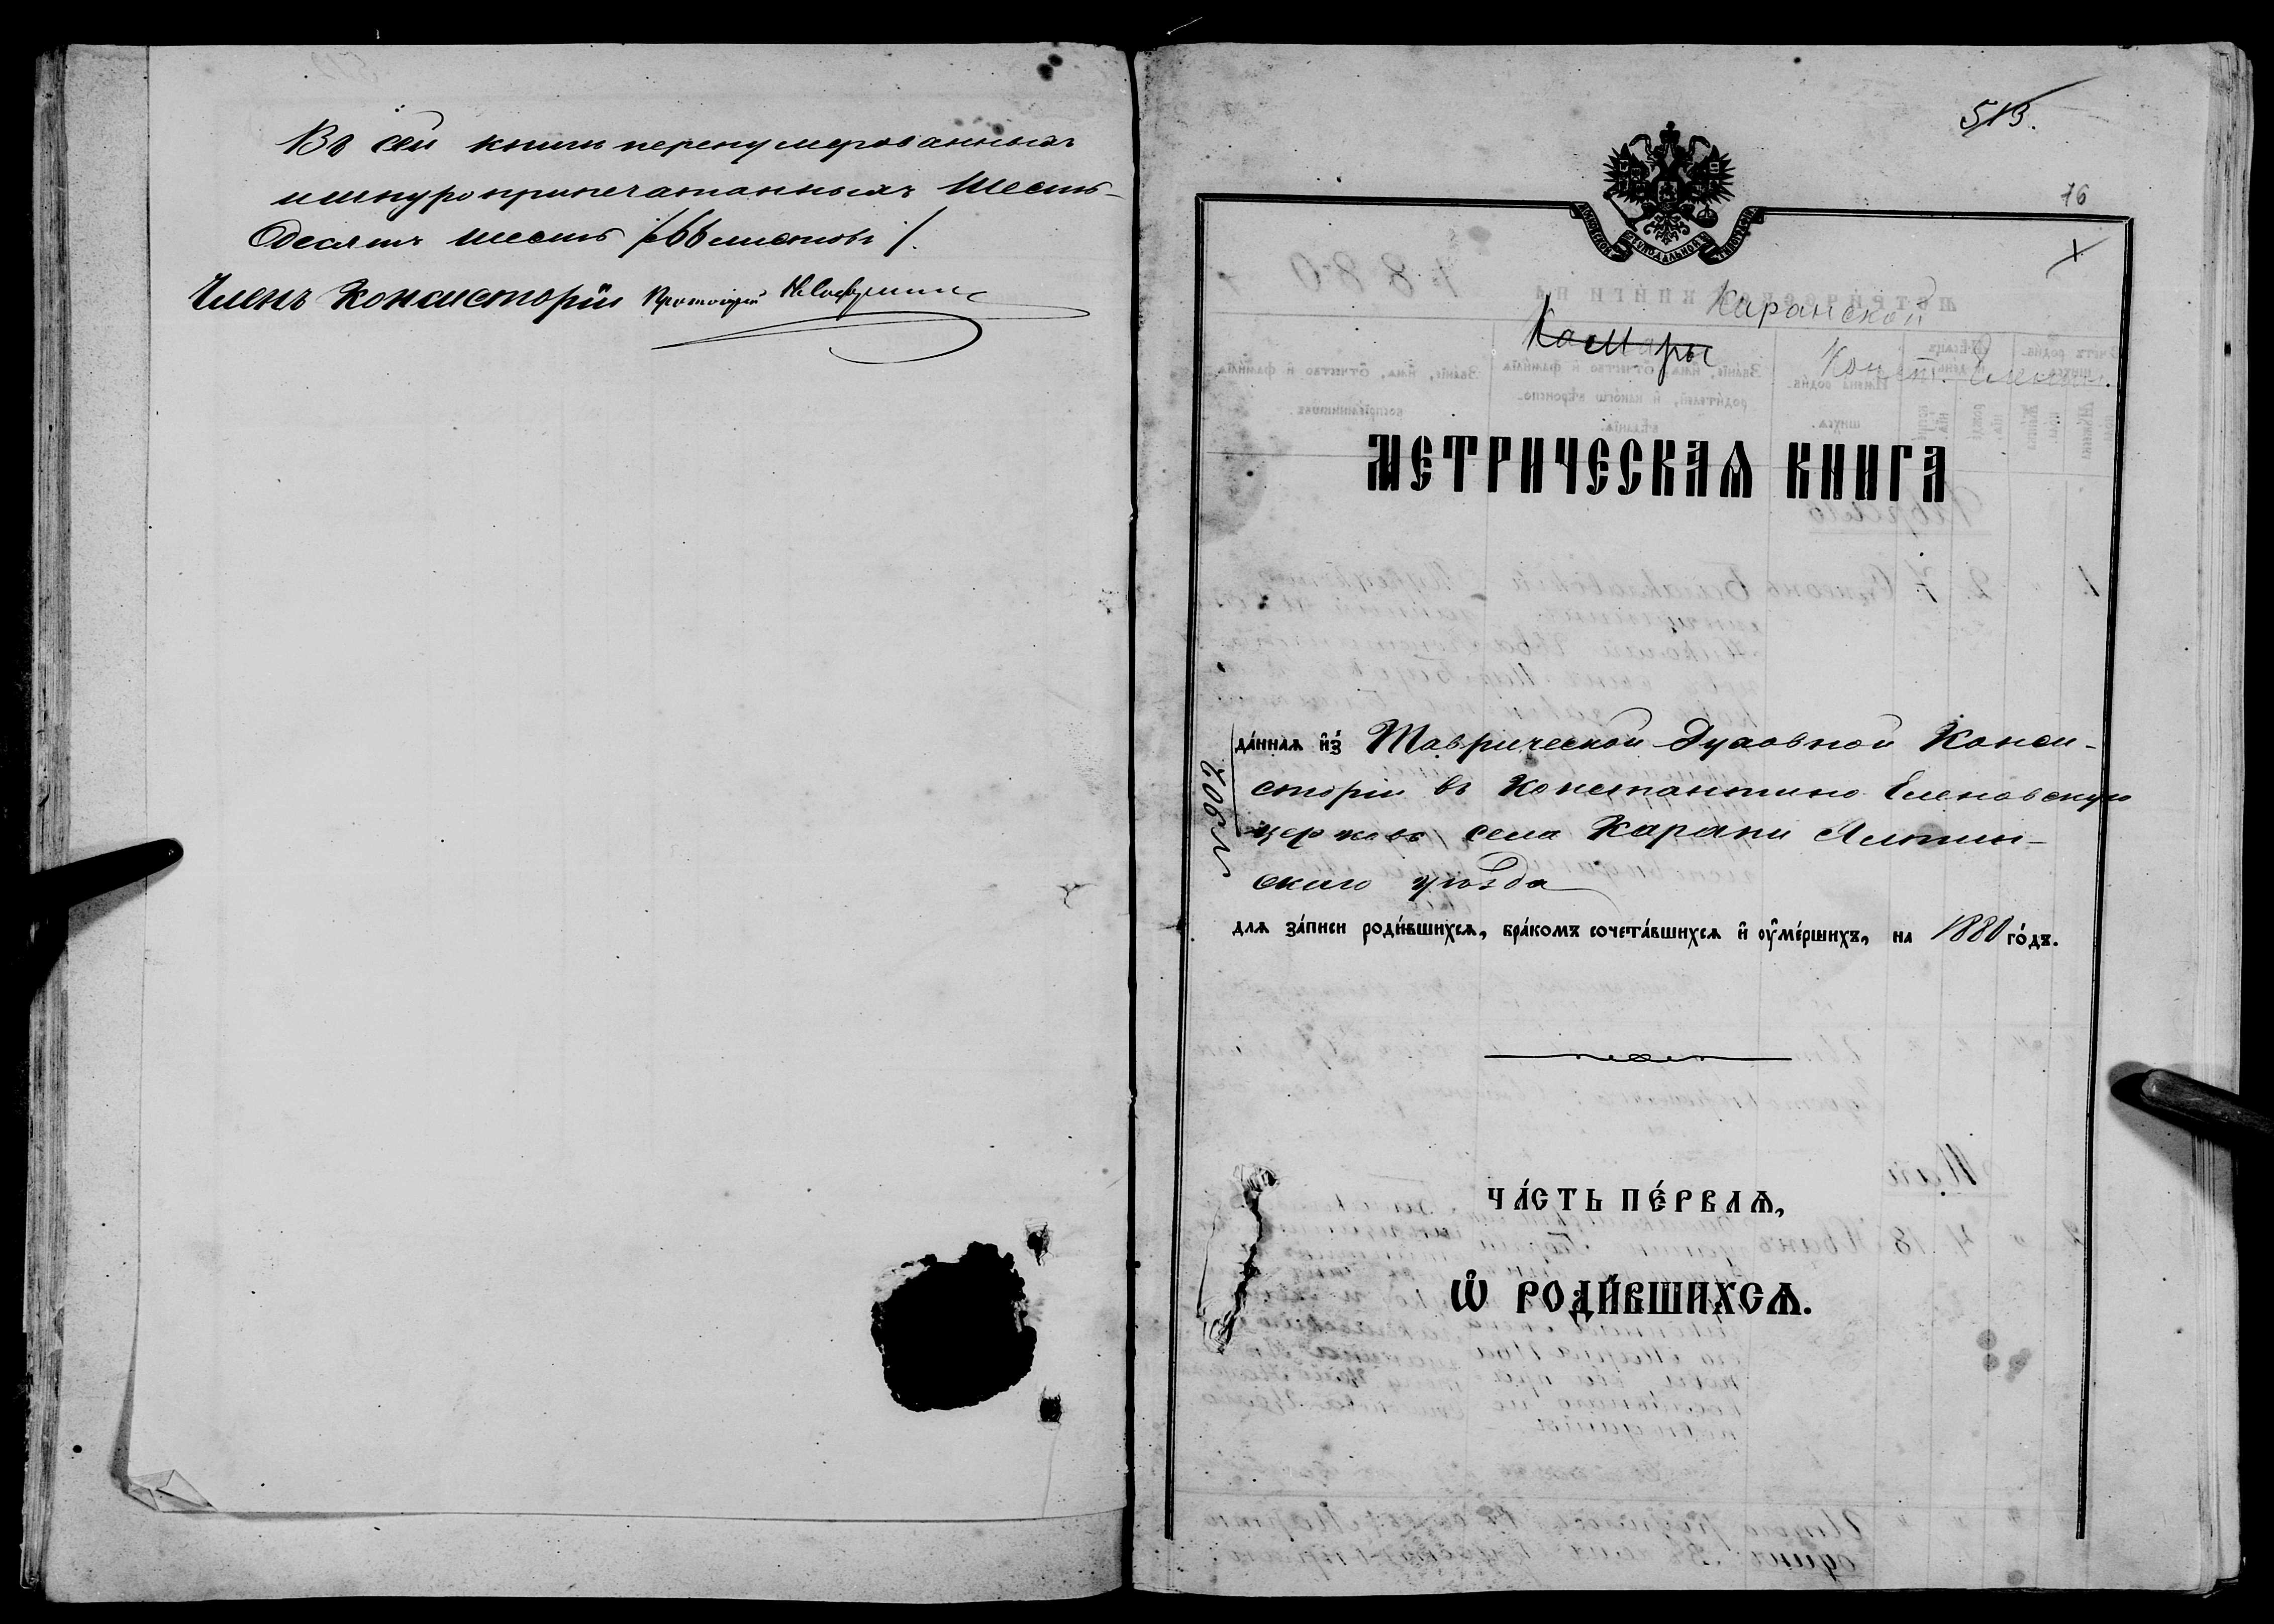 Въ сей книгѣ перенумерованныхъ
и шнуроприпечатанныхъ шесть-
десятъ шесть /66 листовъ/.
Членъ Консисторіи Протоіерей
513.
76
1
МОСКОВСКОЙ СѴНОДАЛЬНОЙ ТИПОГРАФІИ
Каранской
Камары
Конст. Еленин.
МЕТРИЧЕСКАѦ КНИГА
да́ннаѧ и҆з̾ Таврической Духовной Конси-
сторіи въ Константино Еленовскую
церковь села Карани Ялтин-
скаго уѣзда
для за́писи роди́вшихсѧ, бра́комъ сочета́вшихсѧ и҆ оу҆ме́ршихъ, на 1880 го́дъ.
ЧА́СТЬ ПЕ́РВАѦ,
Ѡ҆ РОДИ́ВШИХСѦ.